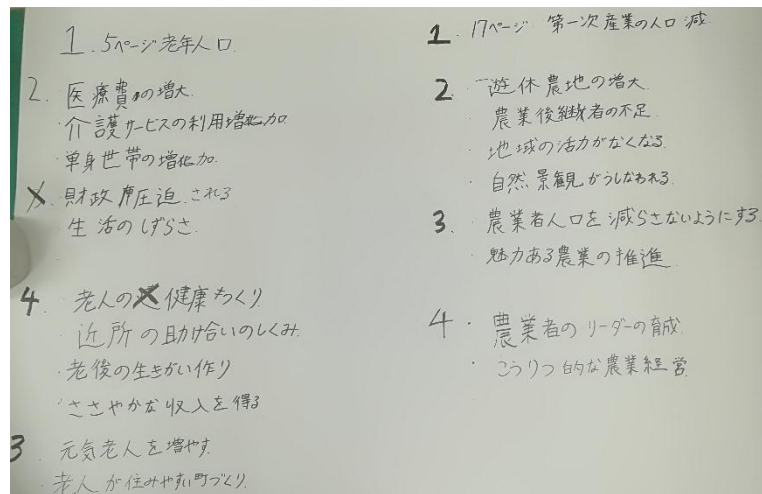 1. 5ページ 老年人口
2. 医療費の増大
介護サービスの利用増加
単身世帯の増加
財政圧迫される
生活のしずらさ
4 老人の健康づくり
近所の助け合いのしくみ
老後の生きがい作り
ささやかな収入を得る
3 元気老人を増やす
老人が住みやすい町づくり
1. 17ページ 第一次産業の人口減
2. 遊休農地の増大
農業後継者の不足
地域の活力がなくなる
自然景観がうしなわれる
3. 農業者人口を減らさないようにする
魅力ある農業の推進
4. 農業者のリーダーの育成
こうりつ的な農業経営